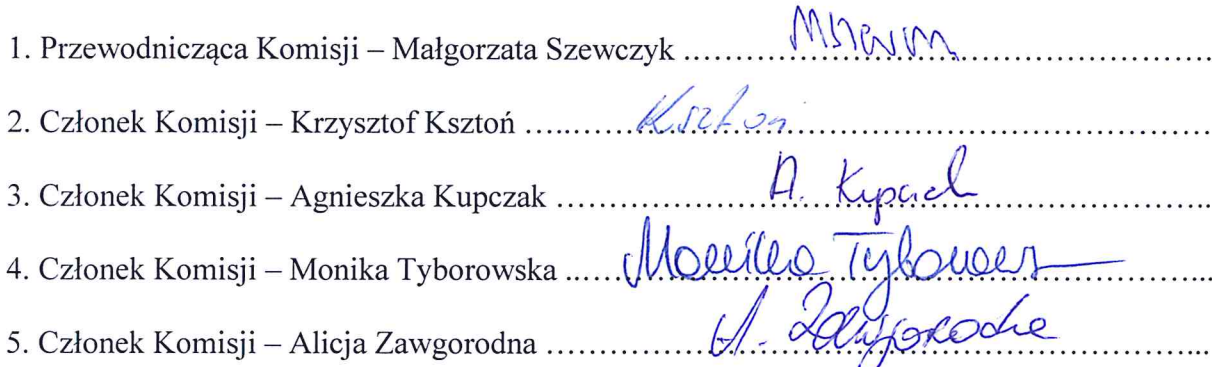 1. Przewodnicząca Komisji – Małgorzata Szewczyk ……………………………………………….
2. Członek Komisji – Krzysztof Ksztoń …..…… Ksztoń ……………………………………
3. Członek Komisji – Agnieszka Kupczak ………………… A. ………………………..
4. Członek Komisji – Monika Tyborowska ..…. Monika ………………...
5. Członek Komisji – Alicja Zawgorodna ……………… A. ………………...